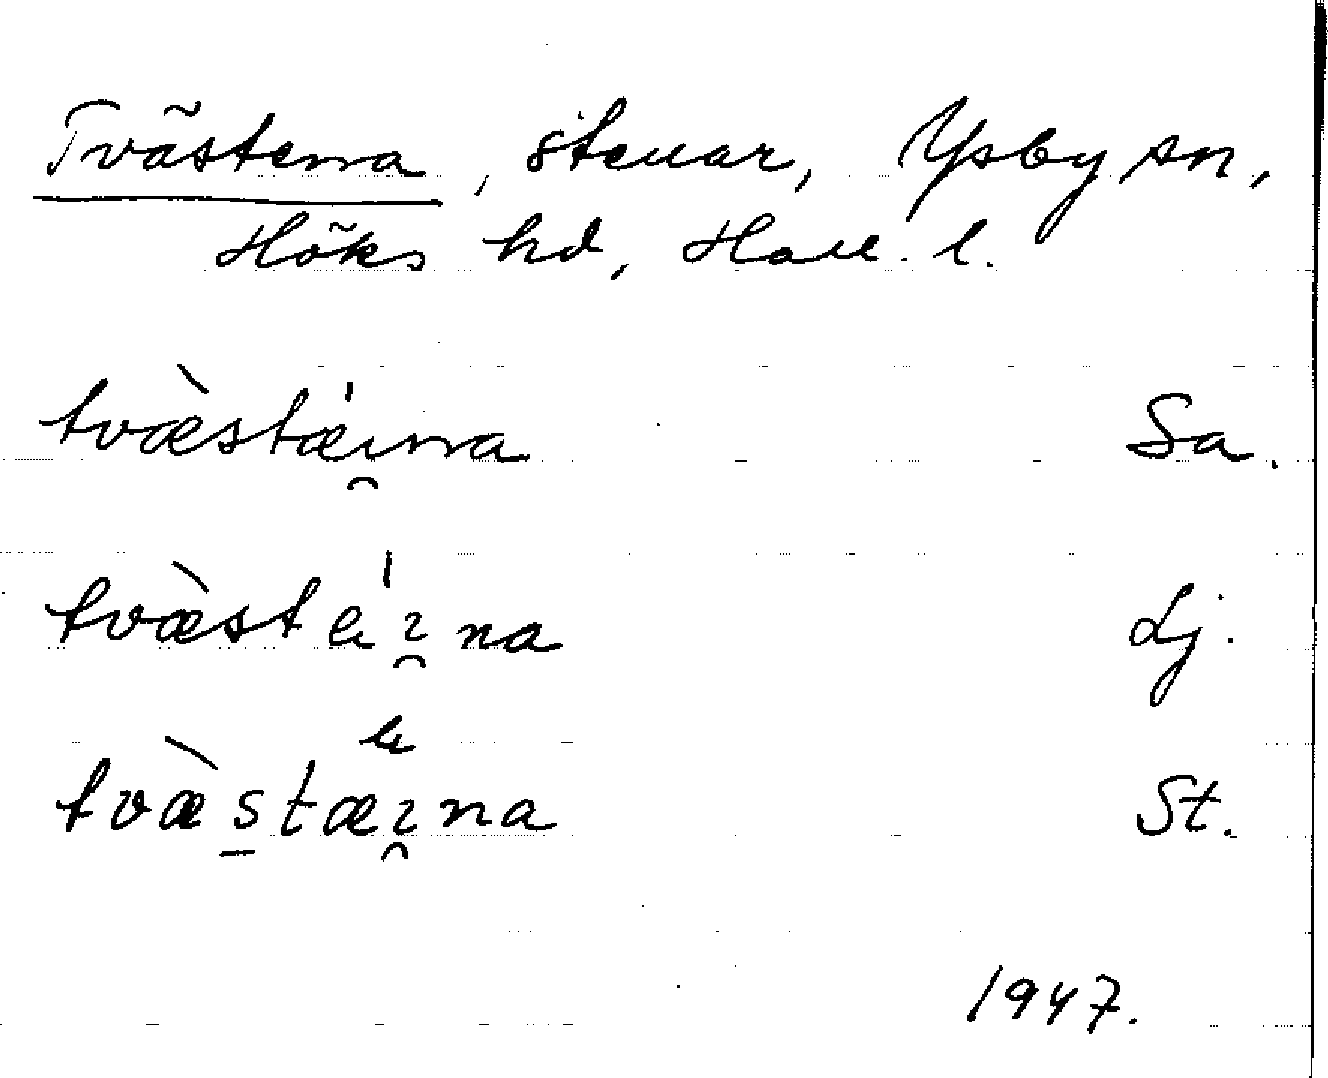 Tvästenna, stenar, Ysby sn,
Höks hd, Hall. l.
tvæ̀stæı̯́nna Sa.
tvæ̀stáı̯na Lj.
tvæ̀s̠tæı̯na St.
1947.